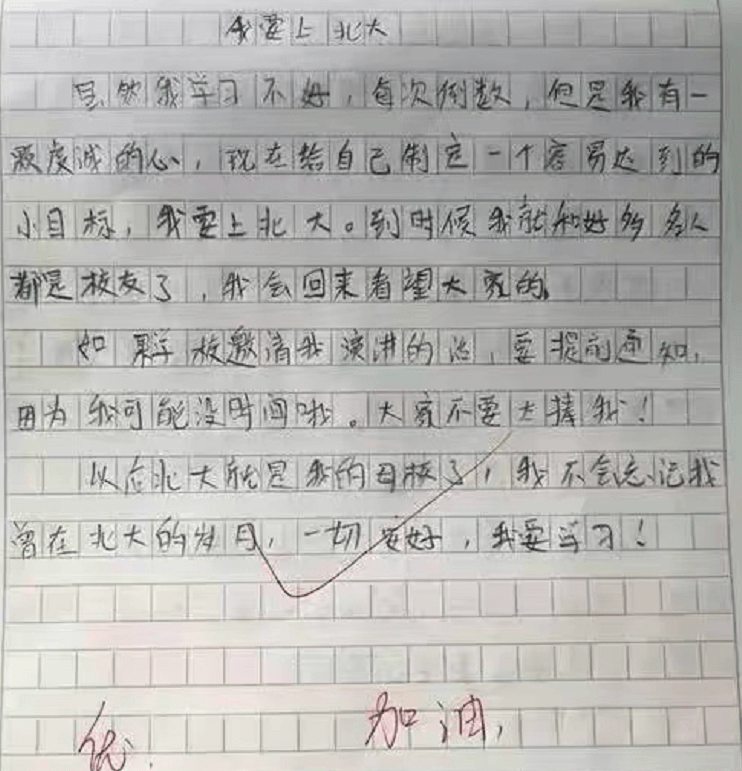 我要上北大
虽然我学习不好，每次倒数，但是我有一
颗虔诚的心，现在给自己制定一个容易达到的
小目标，我要上北大。到时候我就和好多名人
都是校友了，我会回来看望大家的。
如果学校邀请我演讲的话，要提前通知，
因为我可能没时间哦。大家不要太捧我！
以后北大就是我的母校了，我不会忘记我
曾在北大的岁月，一切安好，我要学习！
优 加油，